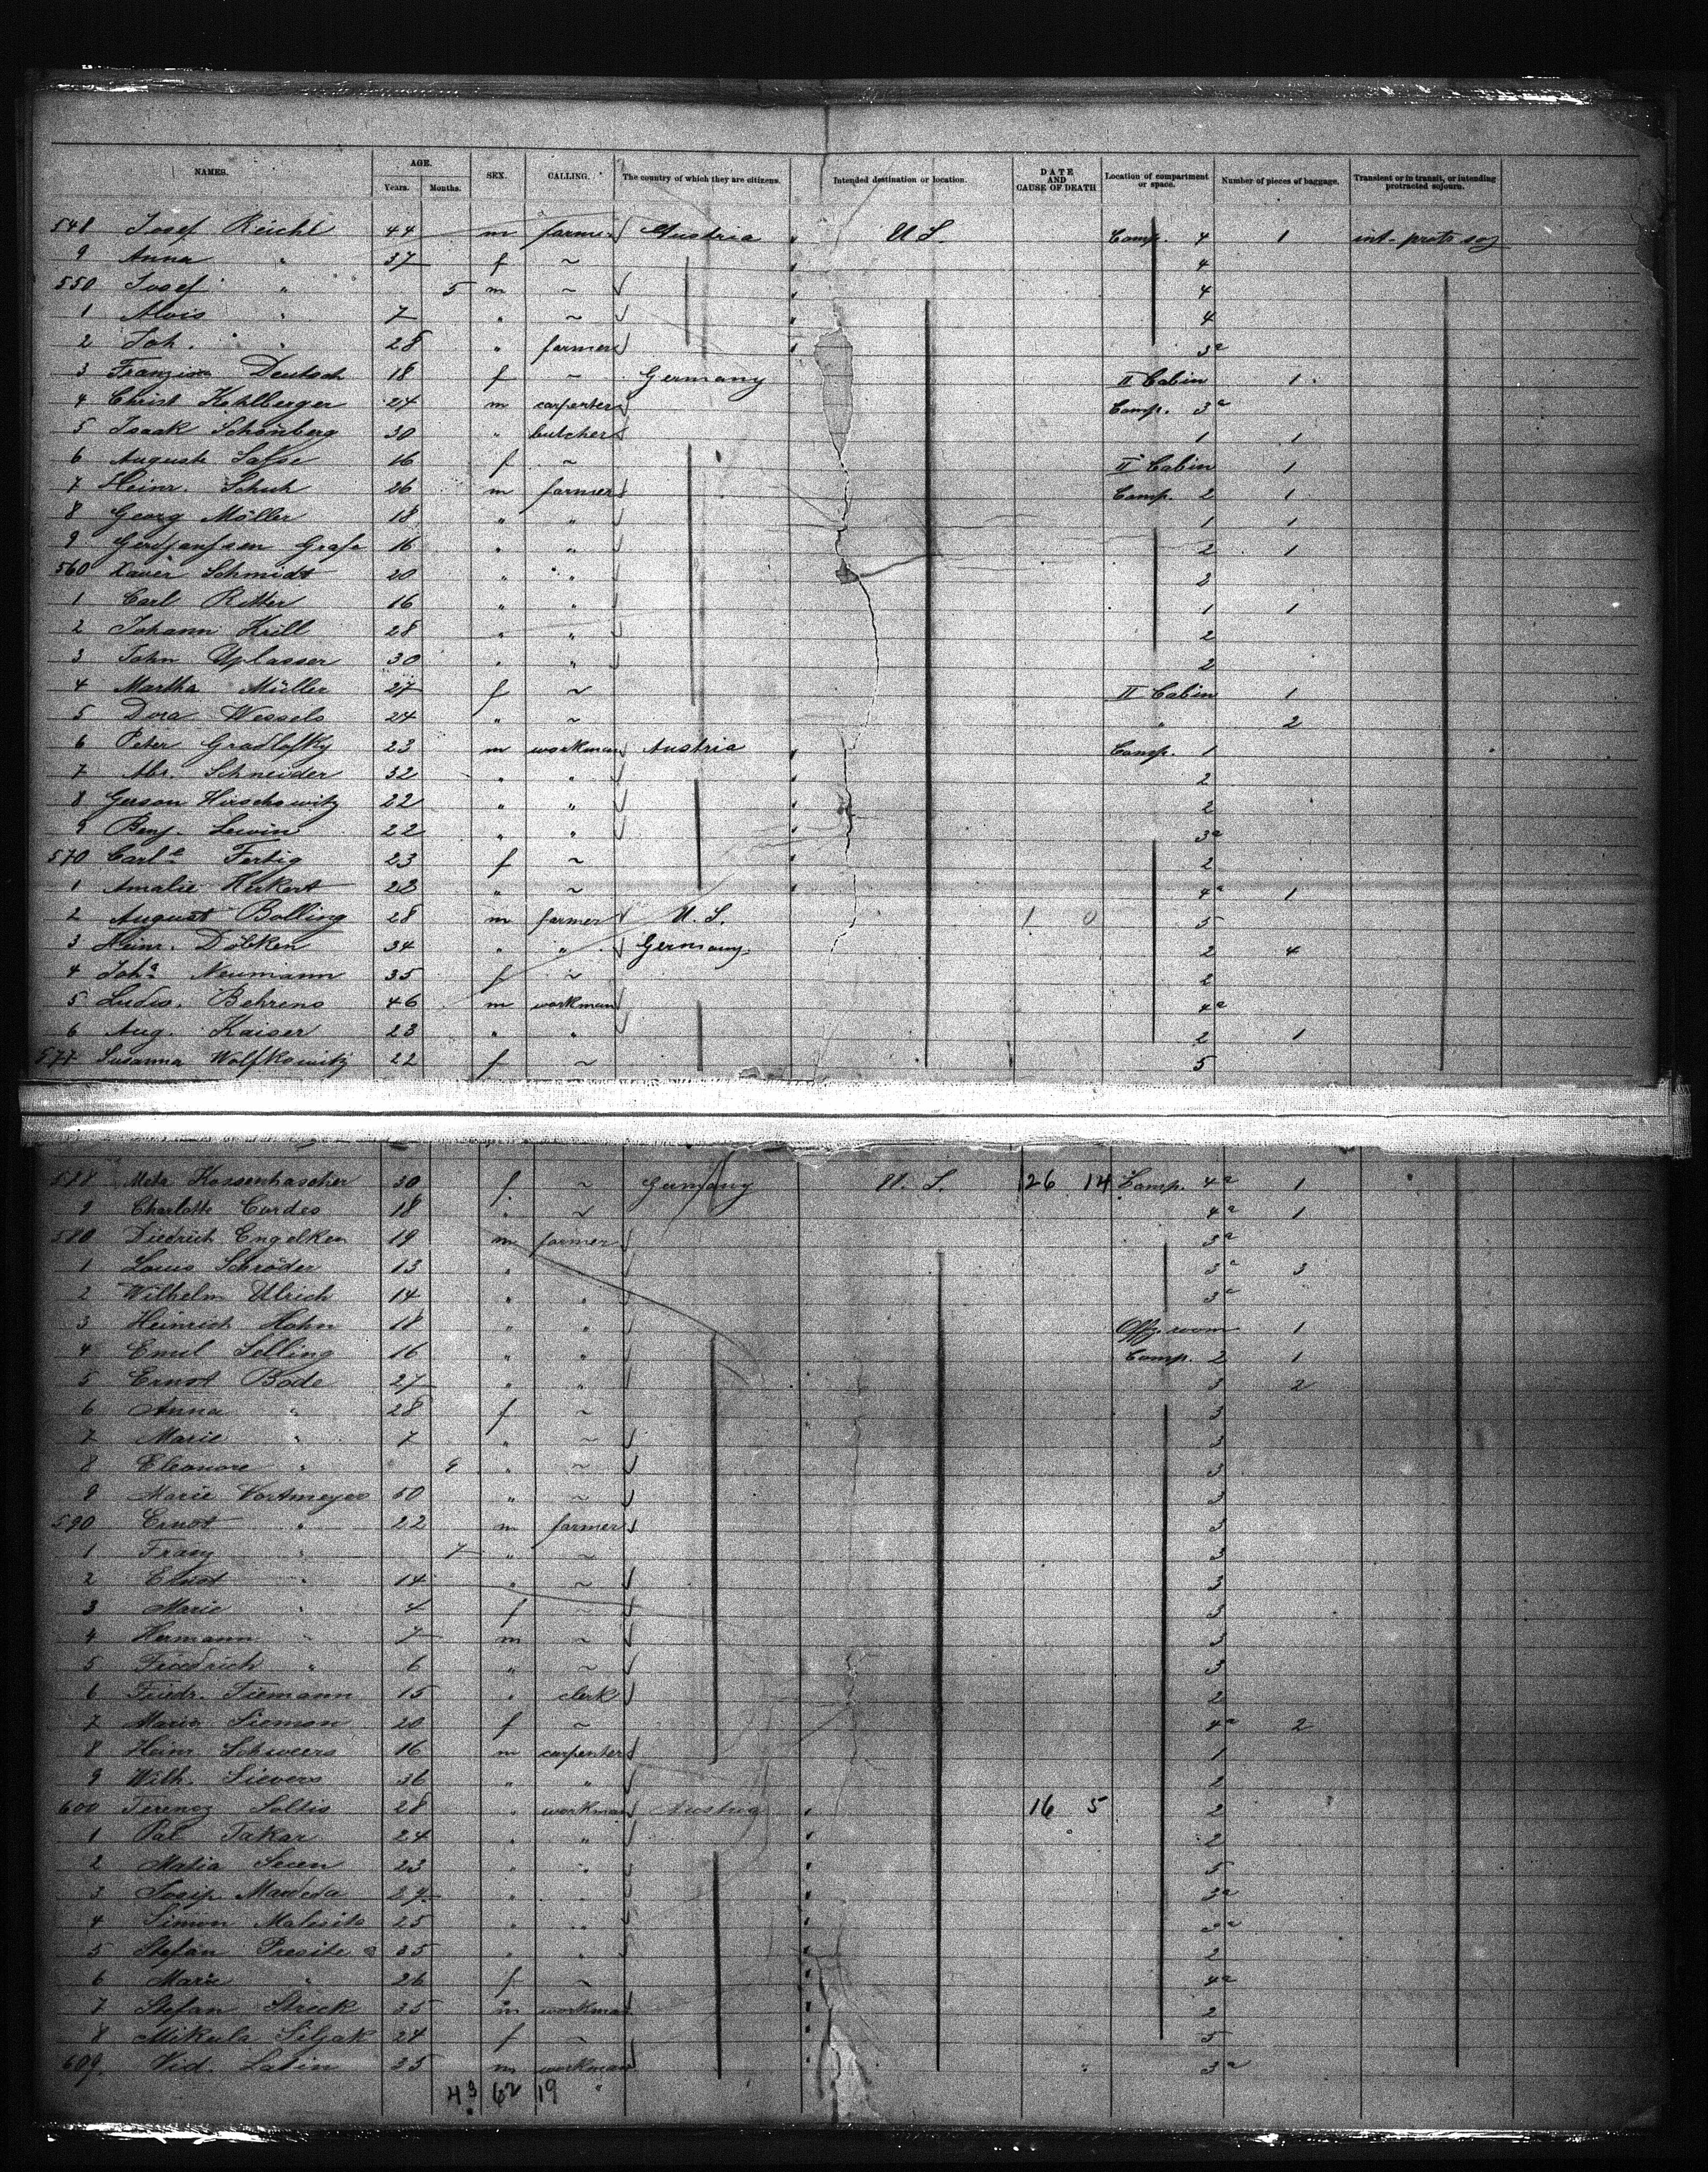 NAMES. AGE. Years. Months. SEX. CALLING. The country of which they are citizens. Intended destination or location. DATE AND CAUSE OF DEATH Location of compartment or space. Number of pieces of baggage. Transient or in transit, or intending protracted sojourn.
548 Josef Reichl 44 m farmer Austria " U S. Comp. 4 1 int. prot. soj
9 Anna " 37 f ~ " 4
550 Josef " 5 m ~ " 4
1 Alois " 7 " ~ " 4
2 Joh. " 28 " farmer " 3a
3 Franziska Deutsch 18 f ~ Germany II Cabin 1
4 Christ Kohlberger 24 m carpenter Comp. 3a
5 Isaak Schönberg 30 " butcher 1 1
6 Auguste 16 f ~ II Cabin 1
7 Heinr. Schuh 26 m farmer Comp. 2 1
8 Georg Möller 18 " " 1 1
9 16 " " 2 1
560 Xaver Schmidt 20 " " 2
1 Carl Ritter 16 " " 1 1
2 Johann Krill 28 " " 2
3 John Uplasser 30 " " 2
4 Martha Müller 27 f ~ II Cabin 1
5 Dora Wessels 24 " ~ " 2
6 Peter Gradlofsky 23 m workman Austria " Comp. 1
7 Abr. Schneider 32 " " " 2
8 Gerson Hirschowitz 22 " " " 2
9 Benj. Lewin 22 " " " 3a
570 Carle Fertig 23 f ~ " 2
1 Amalie Herkert 23 " ~ " 4a 1
2 August Bolling 28 m farmer U. S. 1 0 5
3 Heinr. Döbken 34 " " Germany 2 4
4 Joha Neumann 35 f ~ 2
5 Ludw. Behrens 46 m workman 4a
6 Aug. Kaiser 23 " " 2 1
577 Susanna Wolfkowitz 22 f ~ 5
588 Meta Kossenhascher 30 f ~ Germany U. S. 26 14 Comp. 4a 1
9 Charlotte Cordes 18 " ~ 4a 1
580 Diedrich Engelken 19 m farmer 3a
1 Louis Schröder 13 " 3a 3
2 Wilhelm Ulrich 14 " " 3a
3 Heinrich Hohn 18 " " Off. room 1
4 Emil Selling 16 " " Comp. 2 1
5 Ernst Bode 27 " " 3 2
6 Anna " 28 f ~ 3
7 Marie " 7 " ~ 3
8 Eleonore " 9 " ~ 3
9 Marie Vortmeyer 50 " ~ 3
590 Ernst " 22 m farmer 3
1 Franz " 7 " ~ 3
2 Ernst " 14 " ~ 3
3 Marie " 4 f ~ 3
4 Hermann " 7 m ~ 3
5 Friedrich " 6 " ~ 3
6 Friedr. Tiemann 15 " clerk 2
7 Maria Siemon 20 f ~ 4a 2
8 Heinr. Schweers 16 m carpenter 1
9 Wilh. Sievers 36 " " 2
600 Ferencz Soltis 28 " workman Austria " 16 5 2
1 Pal Takar 24 " " " 2
2 Matia Secen 23 " " " 5
3 Josip Mameda 27 " " " 3a
4 Simon Malesits 25 " " " 3a
5 Stefan 35 " " " 2
6 Marie " 26 f ~ " 4a
7 Stefan Streck 35 m workman " 2
8 Mikula Siljak 24 f ~ " 5
609. Vid. Latin 35 m workman " 3a
43 62 19 "